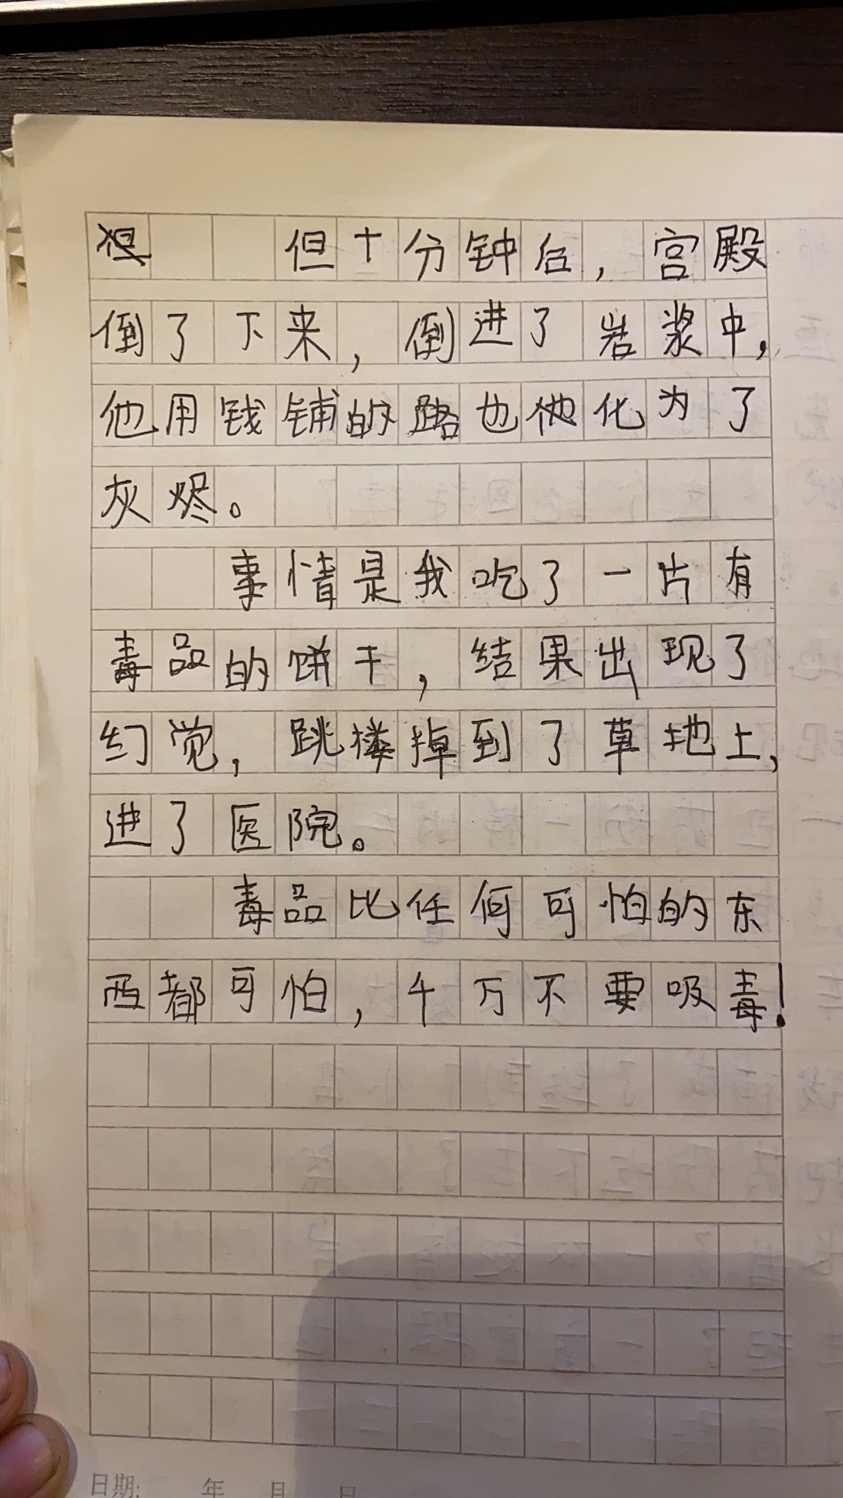 但十分钟后，宫殿
倒了下来，倒进了岩浆中，
他用钱铺的路也他化为了
灰烬。
事情是我吃了一片有
毒品的饼干，结果出现了
幻觉，跳楼掉到了草地上，
进了医院。
毒品比任何可怕的东
西都可怕，千万不要吸毒！
日期： 年 月 日